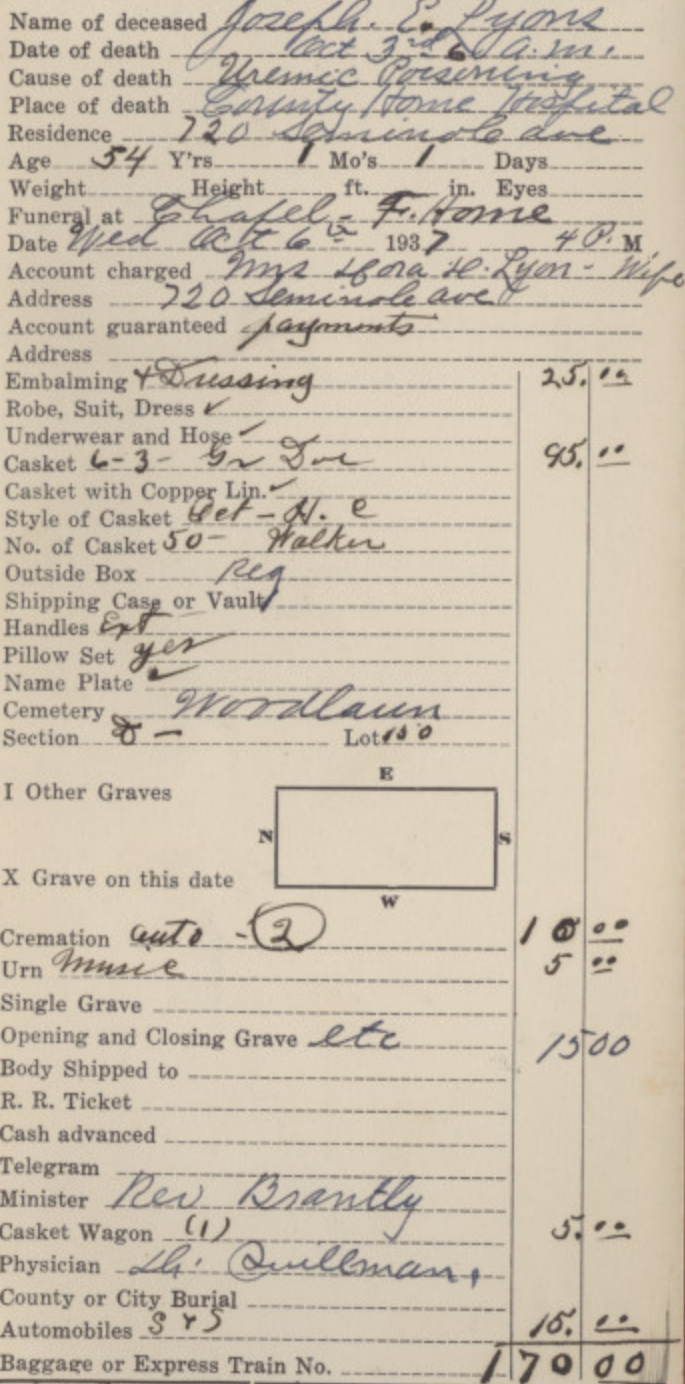 Name of deceased Joseph. E. Lyons
Date of death Oct 3rd 6 a.m.
Cause of death Uremic Poisoning
Place of death County Home Hospital
Residence 720 Seminole ave
Age 54 Y'rs 1 Mo's 1 Days
Weight Height ft. in. Eyes
Funeral at Chapel - F. Home
Date Wed Oct 6th 1937 4 P. M
Account charged Mrs H. Lyon - Wife
Address 720 Seminole ave
Account guaranteed payments
Address
Embalming & Dressing 25.00
Robe, Suit, Dress ✓
Underwear and Hose ✓
Casket 6-3- Gr 95.00
Casket with Copper Lin. ✓
Style of Casket Oct - H. C
No. of Casket 50- Walker
Outside Box Reg
Shipping Case or Vault
Handles Ext
Pillow Set yes
Name Plate ✓
Cemetery Woodlawn
Section D - Lot 150
E
I Other Graves
N S
X Grave on this date
W
Cremation auto - 2 10 00
Urn Music 5 00
Single Grave
Opening and Closing Grave etc 15 00
Body Shipped to
R. R. Ticket
Cash advanced
Telegram
Minister Rev Brantly
Casket Wagon (1) 5.00
Physician Dr. Quillman,
County or City Burial
Automobiles S & S 15.00
Baggage or Express Train No. 170 00